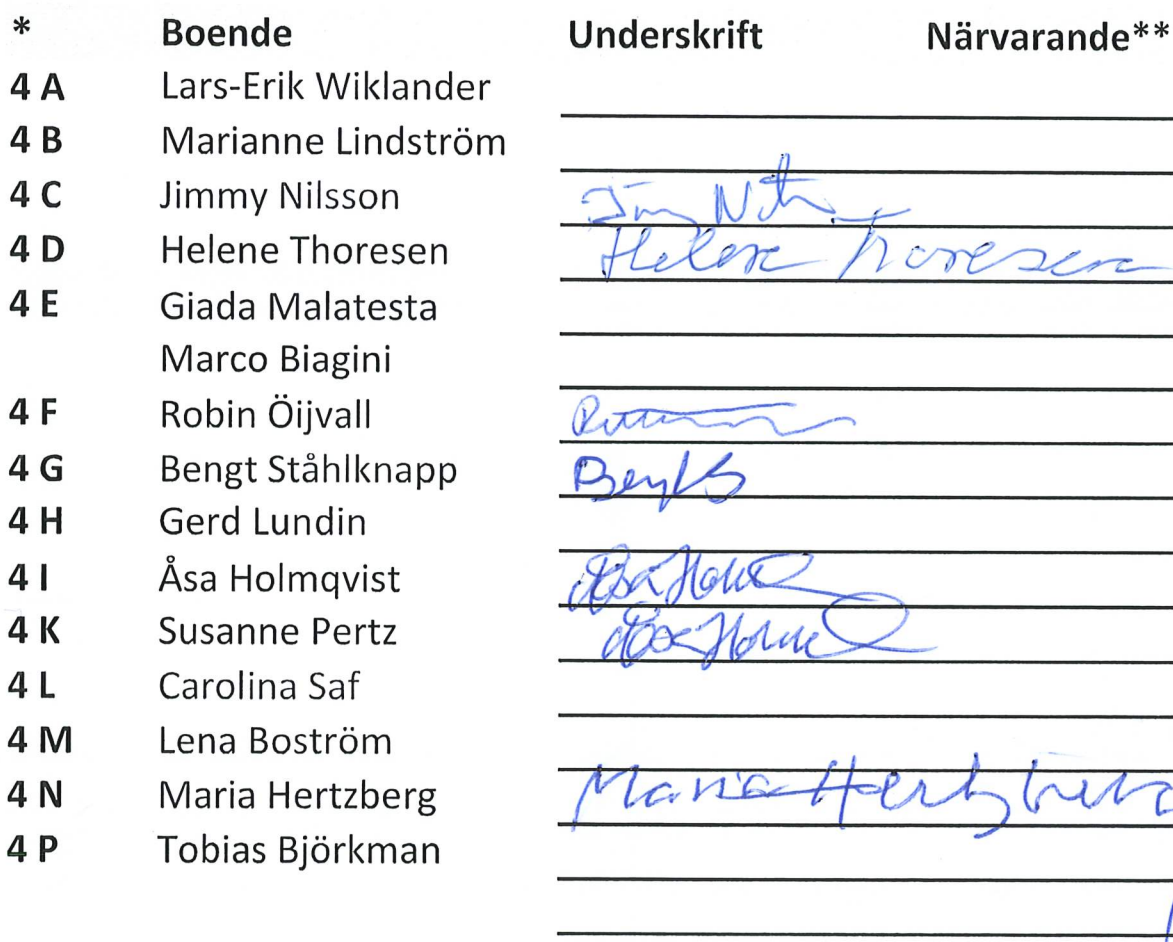 * Boende Underskrift Närvarande**
4 A Lars-Erik Wiklander
4 B Marianne Lindström
4 C Jimmy Nilsson
4 D Helene Thoresen Helene Thoresen
4 E Giada Malatesta
Marco Biagini
4 F Robin Öijvall
4 G Bengt Ståhlknapp Bengt S
4 H Gerd Lundin
4 I Åsa Holmqvist Åsa Holm
4 K Susanne Pertz Åsa Holm
4 L Carolina Saf
4 M Lena Boström
4 N Maria Hertzberg Maria Hertzberg
4 P Tobias Björkman